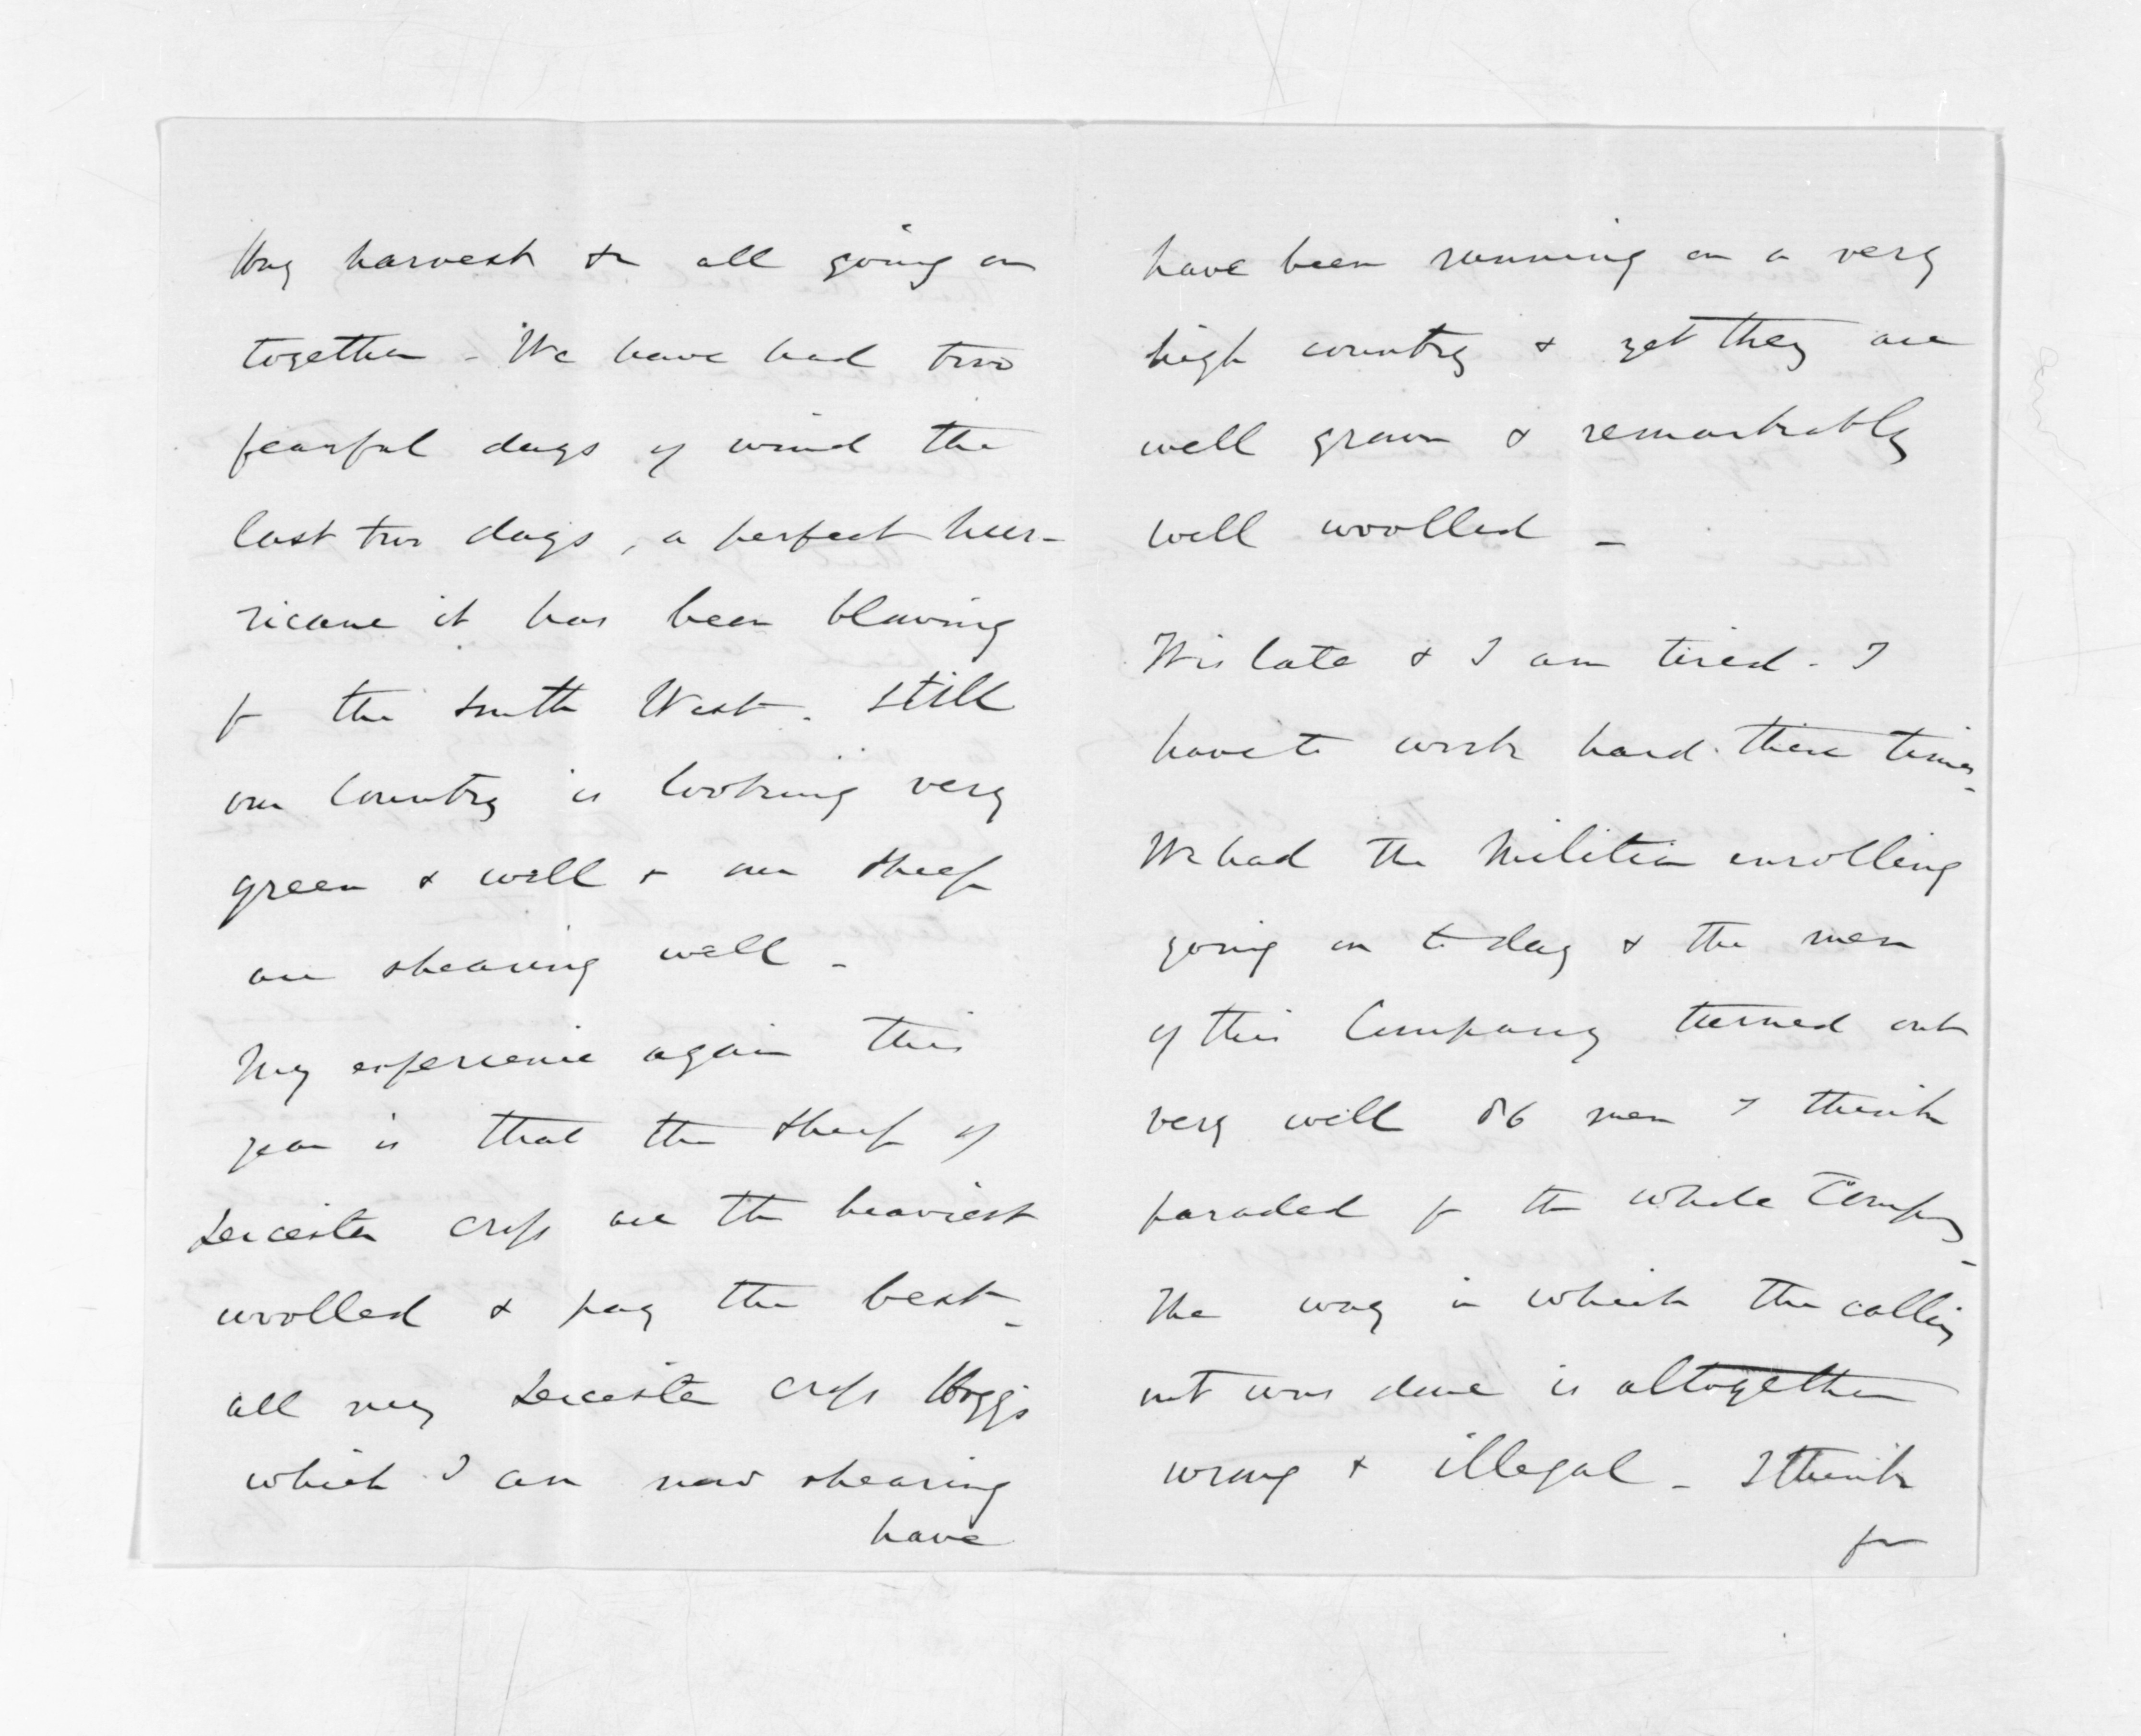 Hay harvest &c all going on
together - We have had two
fearful days of wind the
last two days, a perfect hur-
ricane it has been blowing
fr the South West. Still
our Country is looking very
green & well & our sheep
are shearing well -
My experience again this
year is that the sheep of
Leicester cross are the heaviest
woolled & pay the best -
all my Leicester cross Hoggs
which I am now shearing
have
have been running on a very
high country & yet they are
well grown & remarkably
well woolled -
Tis late & I am tired - I
have to work hard these times -
We had the Militia enrolling
going on to day & the men
of this Company turned out
very well 86 men I think
paraded fr the whole Compy -
The way in which the calling
out was done is altogether
wrong & illegal - I think
fr